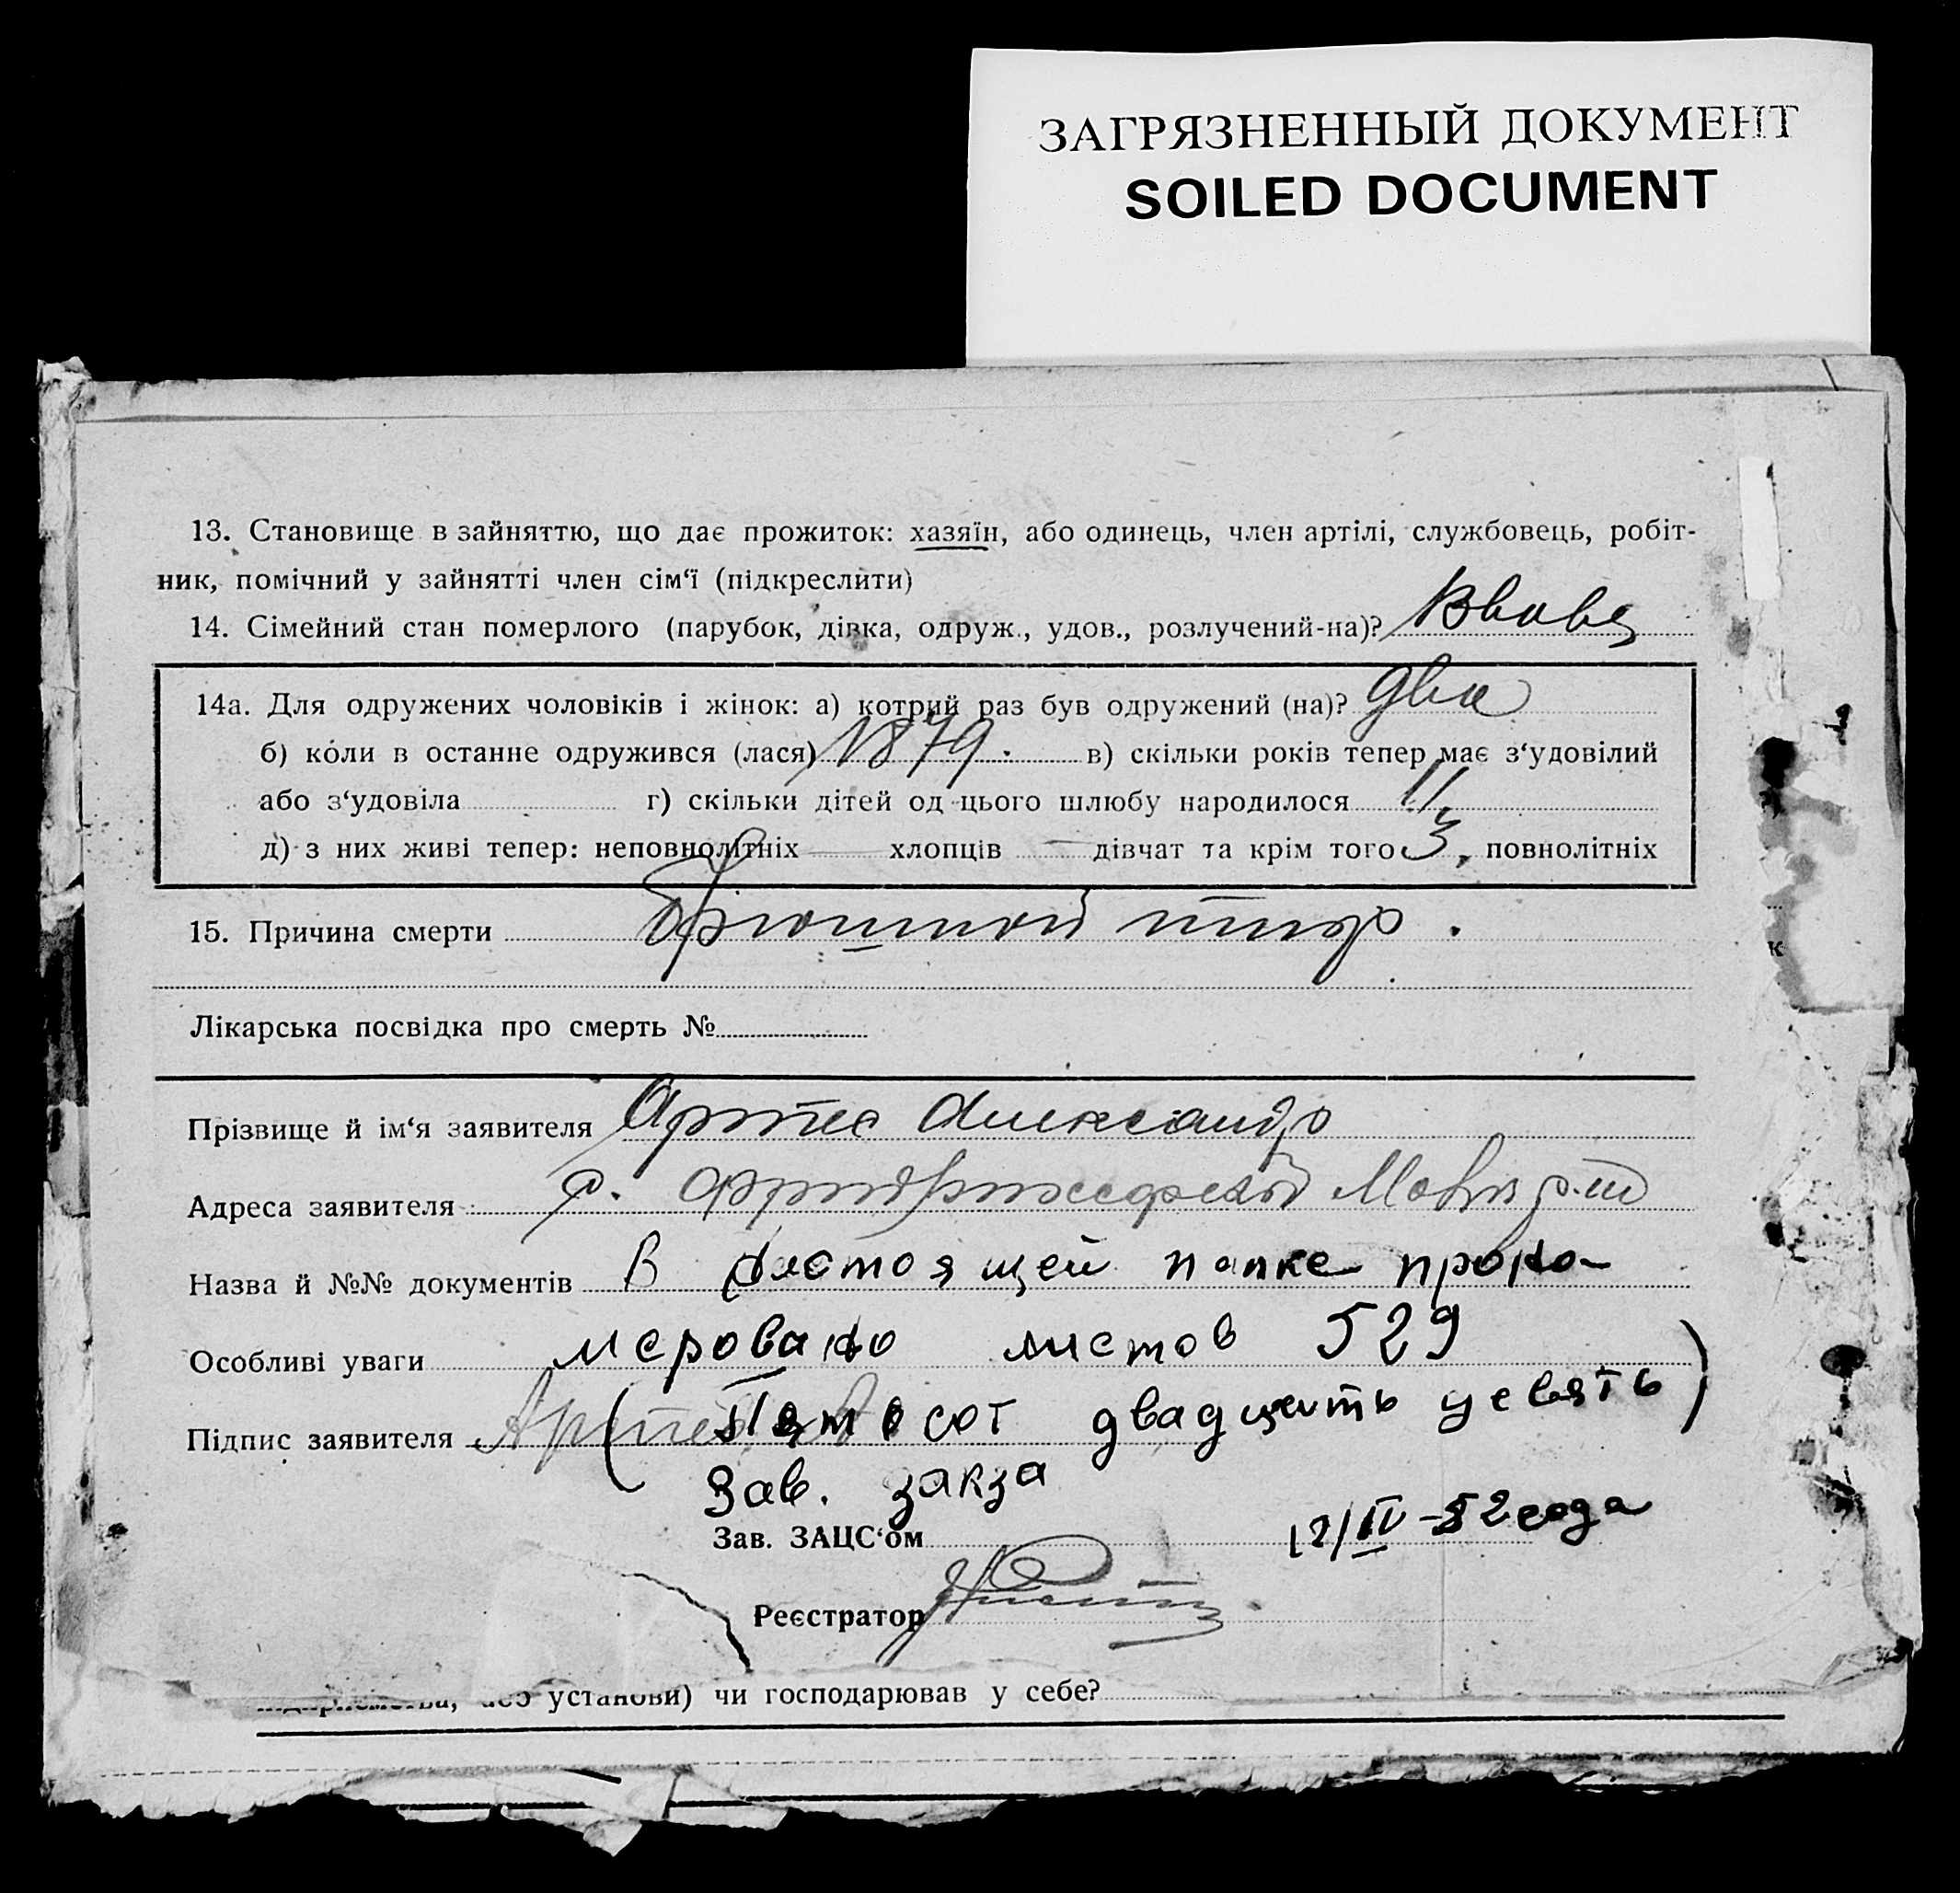 ЗАГРЯЗНЕННЫЙ ДОКУМЕНТ
SOILED DOCUMENT
13. Становище в зайняттю, що дає прожиток: хазяїн, або одинець, член артілі, службовець, робіт-
ник, помічний у зайнятті член сім‘ї (підкреслити)
14. Сімейний стан померлого (парубок, дівка, одруж., удов., розлучений-на)? Вдовец
14а. Для одружених чоловіків і жінок: а) котрий раз був одружений (на)? два
б) коли в останнє одружився (лася) 1879. в) скільки років тепер має з‘удовілий
або з‘удовіла г) скільки дітей од цього шлюбу народилося 11.
д) з них живі тепер: неповнолітніх — хлопців — дівчат та крім того 3, повнолітніх
15. Причина смерти Брюшной тиф.
Лікарська посвідка про смерть №
Прізвище й ім‘я заявителя Артес Александр
Адреса заявителя
Назва й №№ документів В настоящей папке прону-
Особливі уваги меровано листов 529
Підпис заявителя (Пятьсот двадцать девять)
Зав. загза
Зав. ЗАЦС‘ом 12/IV-52 года
Реєстратор
установи) чи господарював у себе?